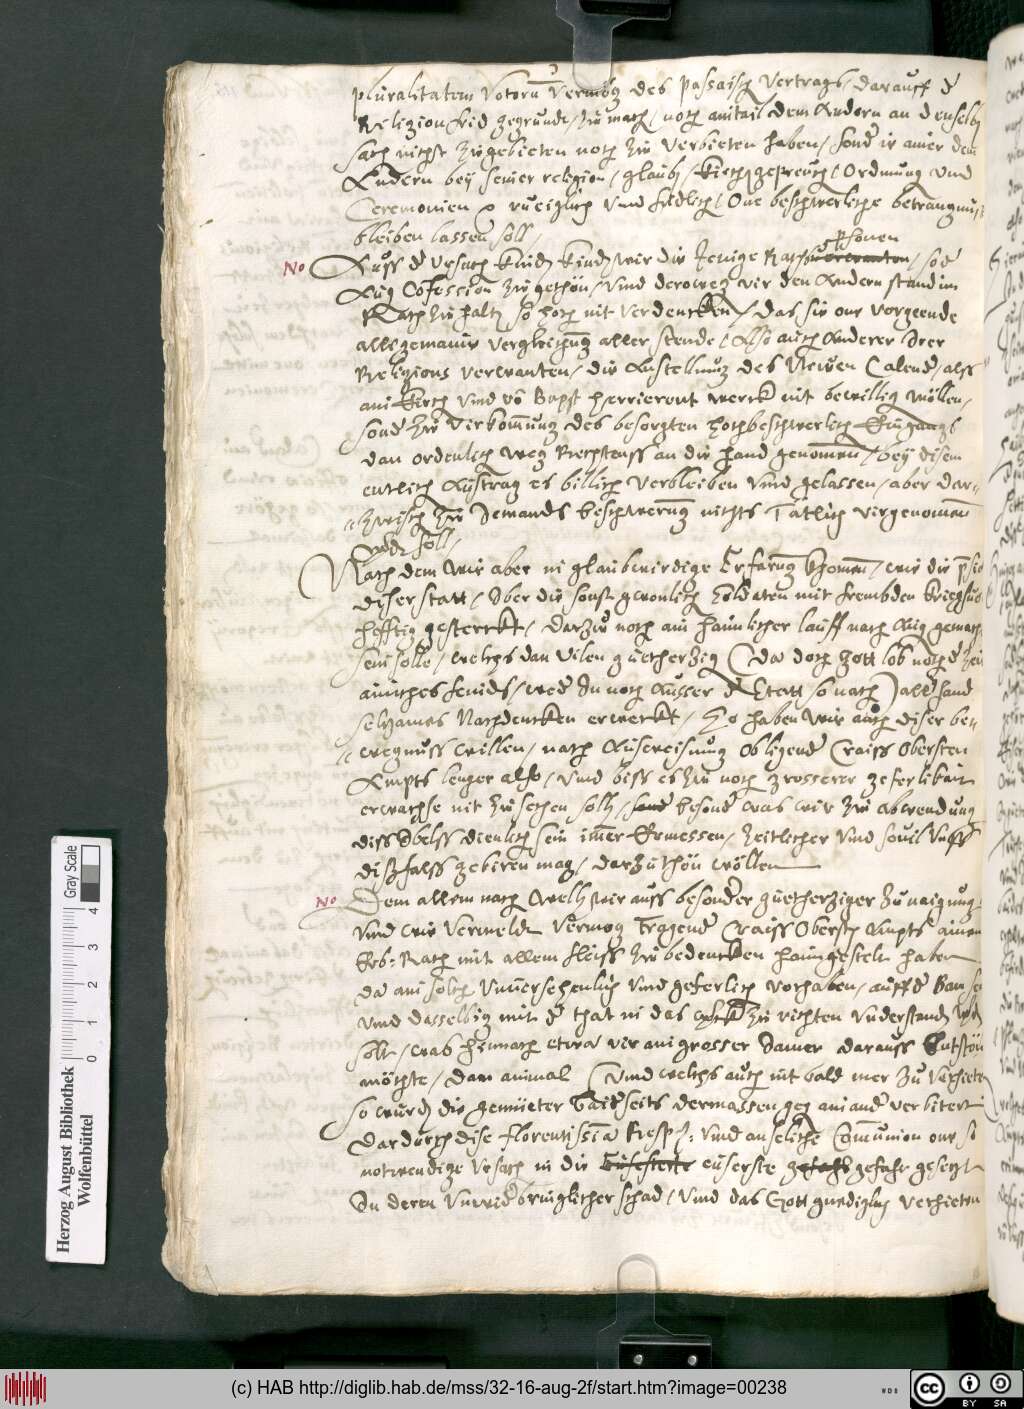 pluralitatem Votorū Vermög des passaisch Vertrags, darauff d
Religion frid gegründt, zu mach, noch ainicail dem Andern an denselb
sach nichts zugebieten noch zu verbieten haben, sond in ainer dem
Andern bey seiner religion, glaub, kirchgepreuch, Ordnung vnd
Ceremonien rueiglich vnd fridlich, One beschwerliche betrangnus
bleiben lassen soll,
psonen
No Auss d Vrsach kund wir die Jenige Raths verwanten, so d
Aug Cofession zugethon, vnd deroweg wir den Andern stand im
Rath zuhalt so hoch nit verdencken, das sie one vorgeende
allgemaine vergleichung aller stende, Also auch Anderer Irer
Religions verwanten, die Anstellung des Newen Calend, als
ain kirch vnd vō Bapst herrierent werck nit bewillig wöllen,
sond zu virkomung des besorgten hochbeschwerlich Eingangs
dan ordenlich weg Rechtens an die hand genomen, bey disem
entlich Austrag es billich verbleiben vnd gelassen, aber dar-
zwisch zu Jemands beschwerung nichts Tätlich virgenomen
werd soll,
Nach dem wir aber in glaubwirdige Erfarung khomen, wie die
diser statt, Vber die sonst gewonlich Soldaten mit frembden kriegsu
hefftig gesterckt, darzu noch ain haimlicher lauff nach Aug gemach
sein solle, welchs dan vilen guetherzig (da doch Gott lob noch d zeit
ainiches feinds, wed In noch ausser d Statt so nach) allerhand
selzames Nachdencken erweckt, So haben wir auch diser be-
wegnuss willen, nach Ausweisung obligend Craiss Obersten
Ampts lenger also, vnd biss es zu noch grosserer geferlikait
erwachse nit zu sehen soll, sond besond was wir zu abwendung
diss Vbels dienlich sein imer Ermessen, zeitlicher vnd souil vnss
dissfalss gebiren mag, darzu thon wöllen
No Dem allem nach Welh wir auss besonder guetherziger zunaigung
vnd wie vermeldt vermög tragend Craiss Obersten Ampts ainem
Erb: Rath mit allem fleiss zu bedencken haimgestelt haben
da ain solch vnuersehenlich vnd geferlich vorhaben, auff d Ban
vnd dasselbig mit d that in das werck zu richten vnderstand
solt, was hernach etwa vir ain grosser Jamer darauss Entston
möchte, dan ainmal (vnd welchs auch nit bald mer zu
so wurd die gemüeter Baiderseits dermassen geg ainand verbitert
dardurch dise florentissima Resp: vnd anseliche Comunion one
notwendige Vrsach in die euserste gefahr gesezt
In deren vnwid bringlicher schad, vnd das Gott gnediglich verhieten
Herzog August Bibliothek
Wolfenbüttel
Gray Scale
0 1 2 3 4
(c) HAB http://diglib.hab.de/mss/32-16-aug-2f/start.htm?image=00238
WDB
cc BY SA